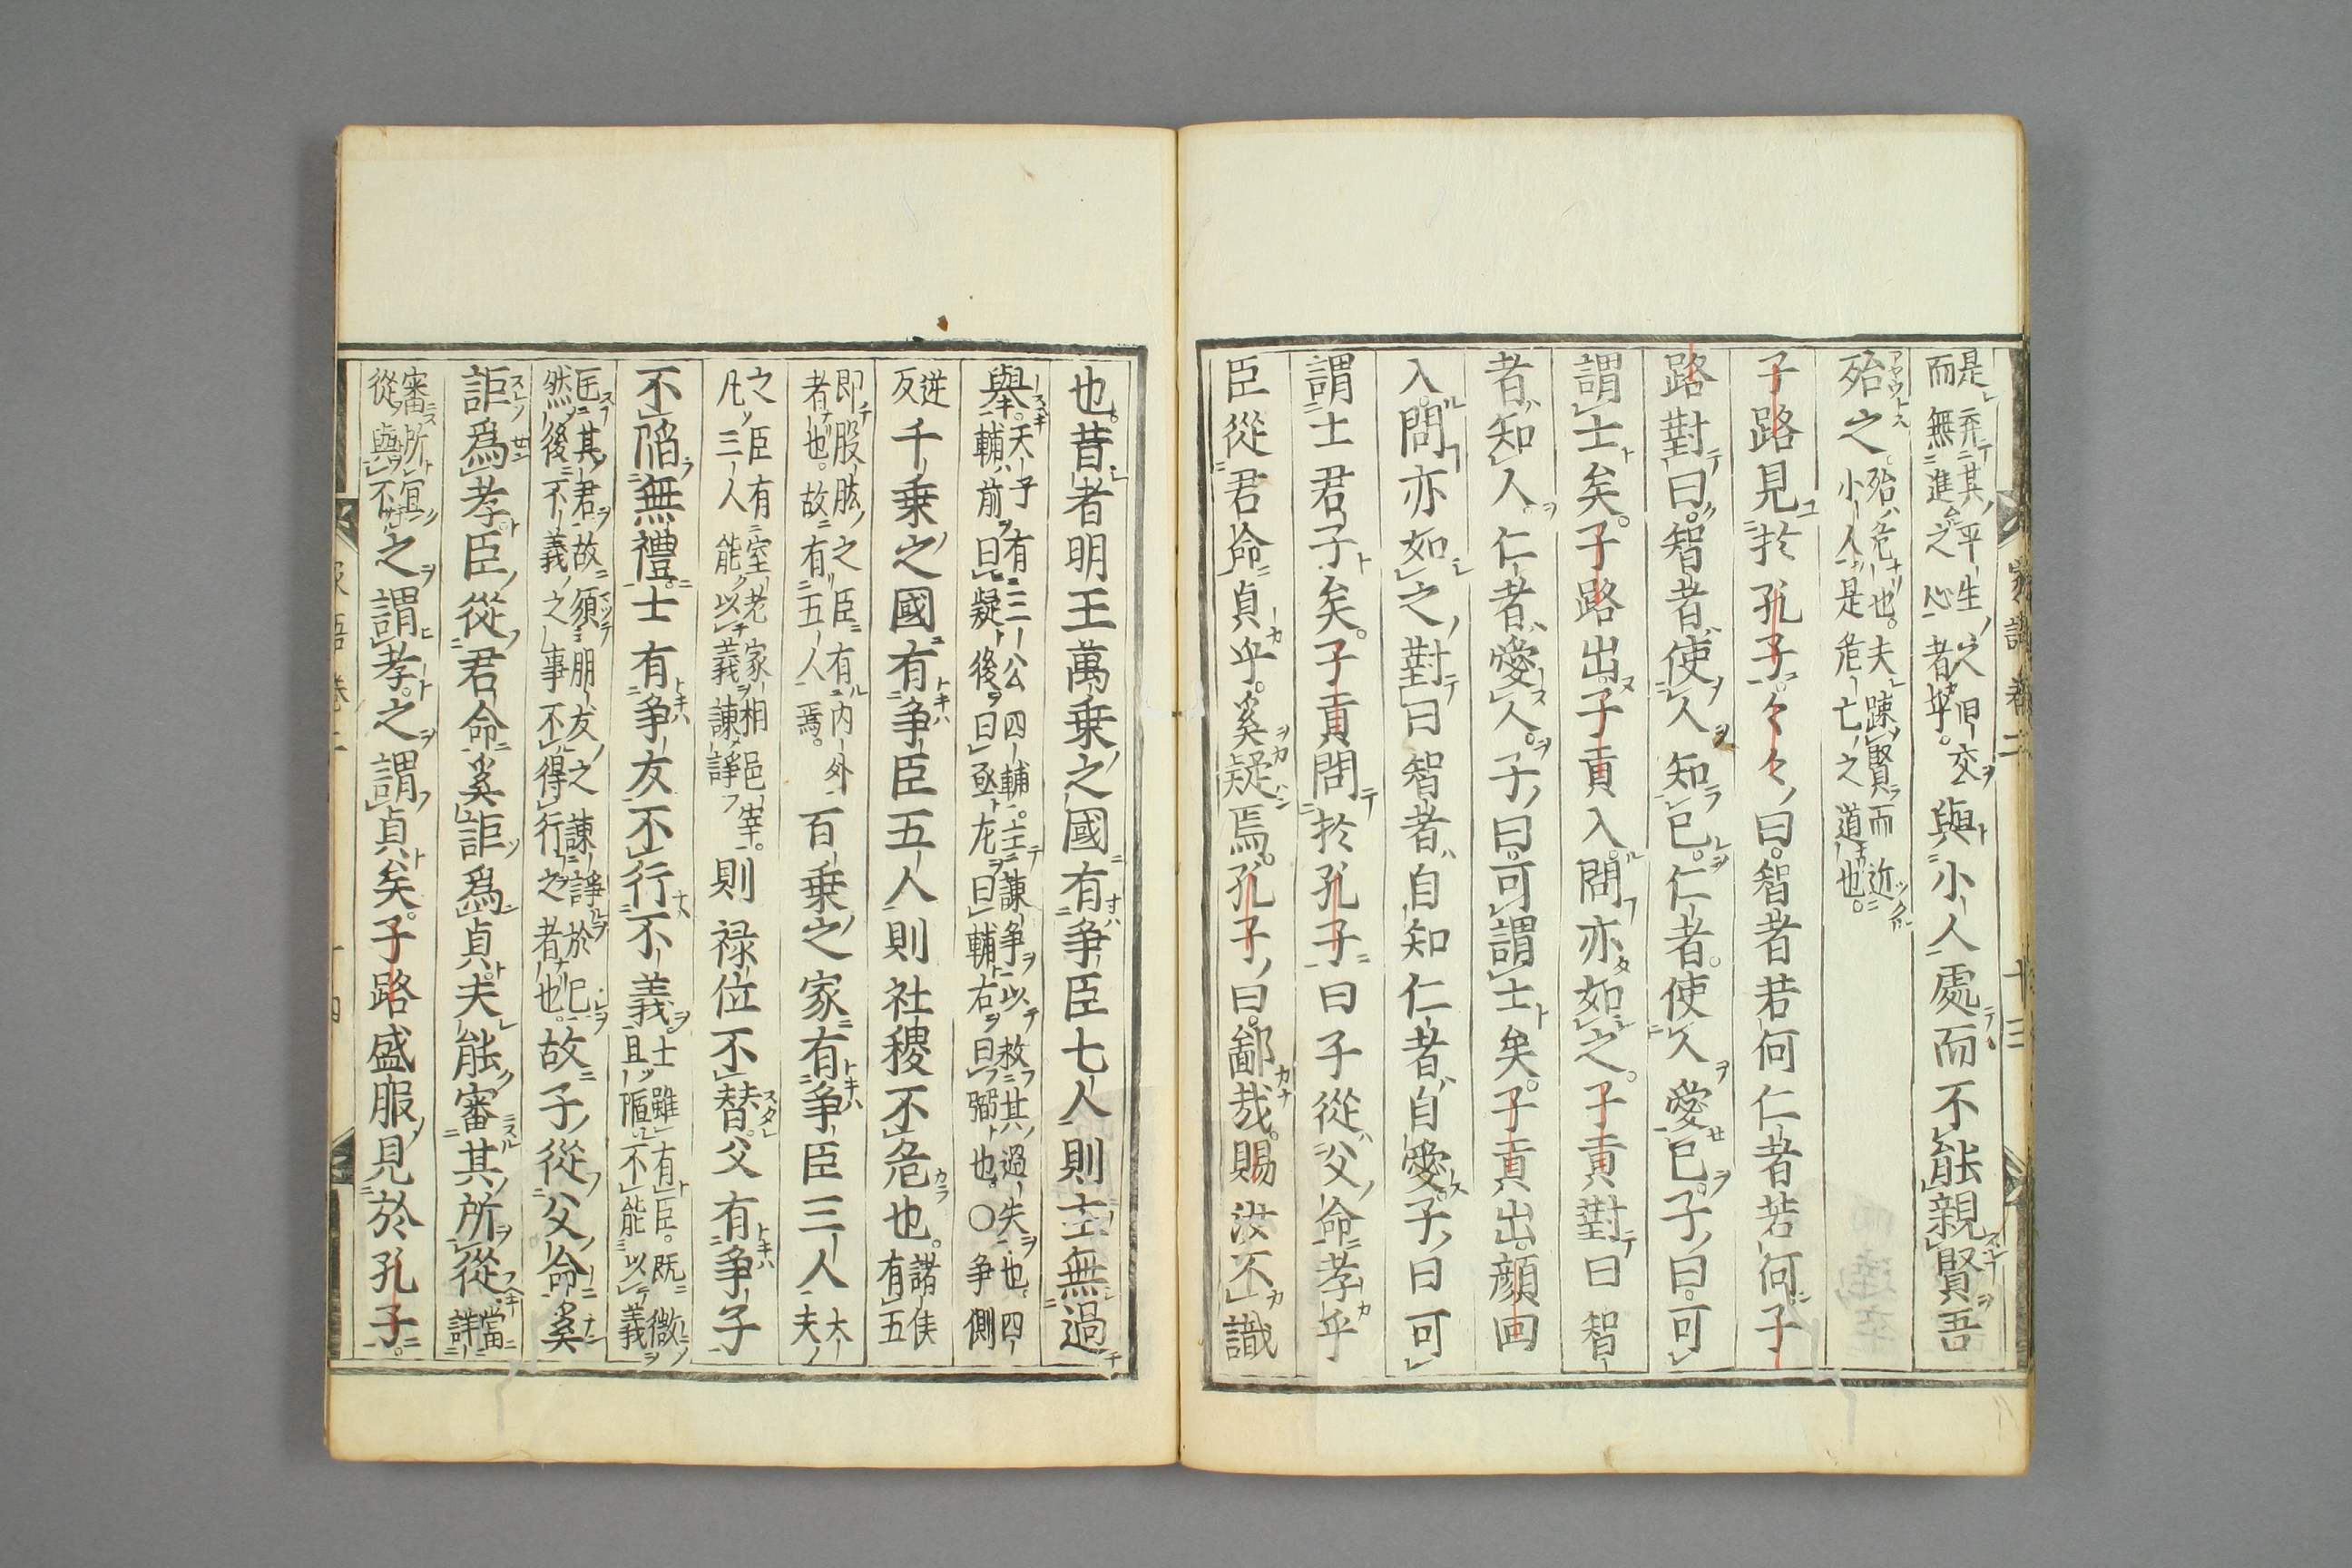 是弃其平生之旧交
而無進之心者乎。與小人處而不能親賢吾
殆之。殆危也。夫踈賢而近
小人是危亡之道也。
子路見於孔子。々々曰。智者若何仁者若何子
路對曰。智者使人知己。仁者。使人愛己。子曰。可
謂士矣。子路出。子貢入。問亦如之。子貢對曰智
者知人。仁者愛人。子曰。可謂士矣。子貢出。顔回
入。問亦如之對曰智者自知仁者自愛。子曰可
謂士君子矣。子貢問於孔子曰子從父命孝乎
臣從君命貞乎。奚疑焉。孔子曰。鄙哉。賜汝不識
也。昔者明王萬乗之國有争臣七人則主無過
舉。天子有三公四輔。主諫争以救其過失也。四
輔前曰疑後曰亟左曰輔右曰弼也。〇争側
迸
反千乗之國有争臣五人則社稷不危也。諸侯
有五
即股肱之臣有内外
者也。故有五人焉。百乗之家有争臣三人大
夫
之臣有室老家相邑宰。
凡三人能以義諫諍則禄位不替。父有争子
不陷無禮。士有争友不行不義。士雖有臣。既微
且陋不能以義
匡其君故須朋友之諫諍於己
然後不義之事不得行之者也。故子從父命奚
詎爲孝臣從君命奚詎爲貞夫能審其所從當
詳
審所冝
從與不之謂孝。之謂貞矣。子路盛服見於孔子。